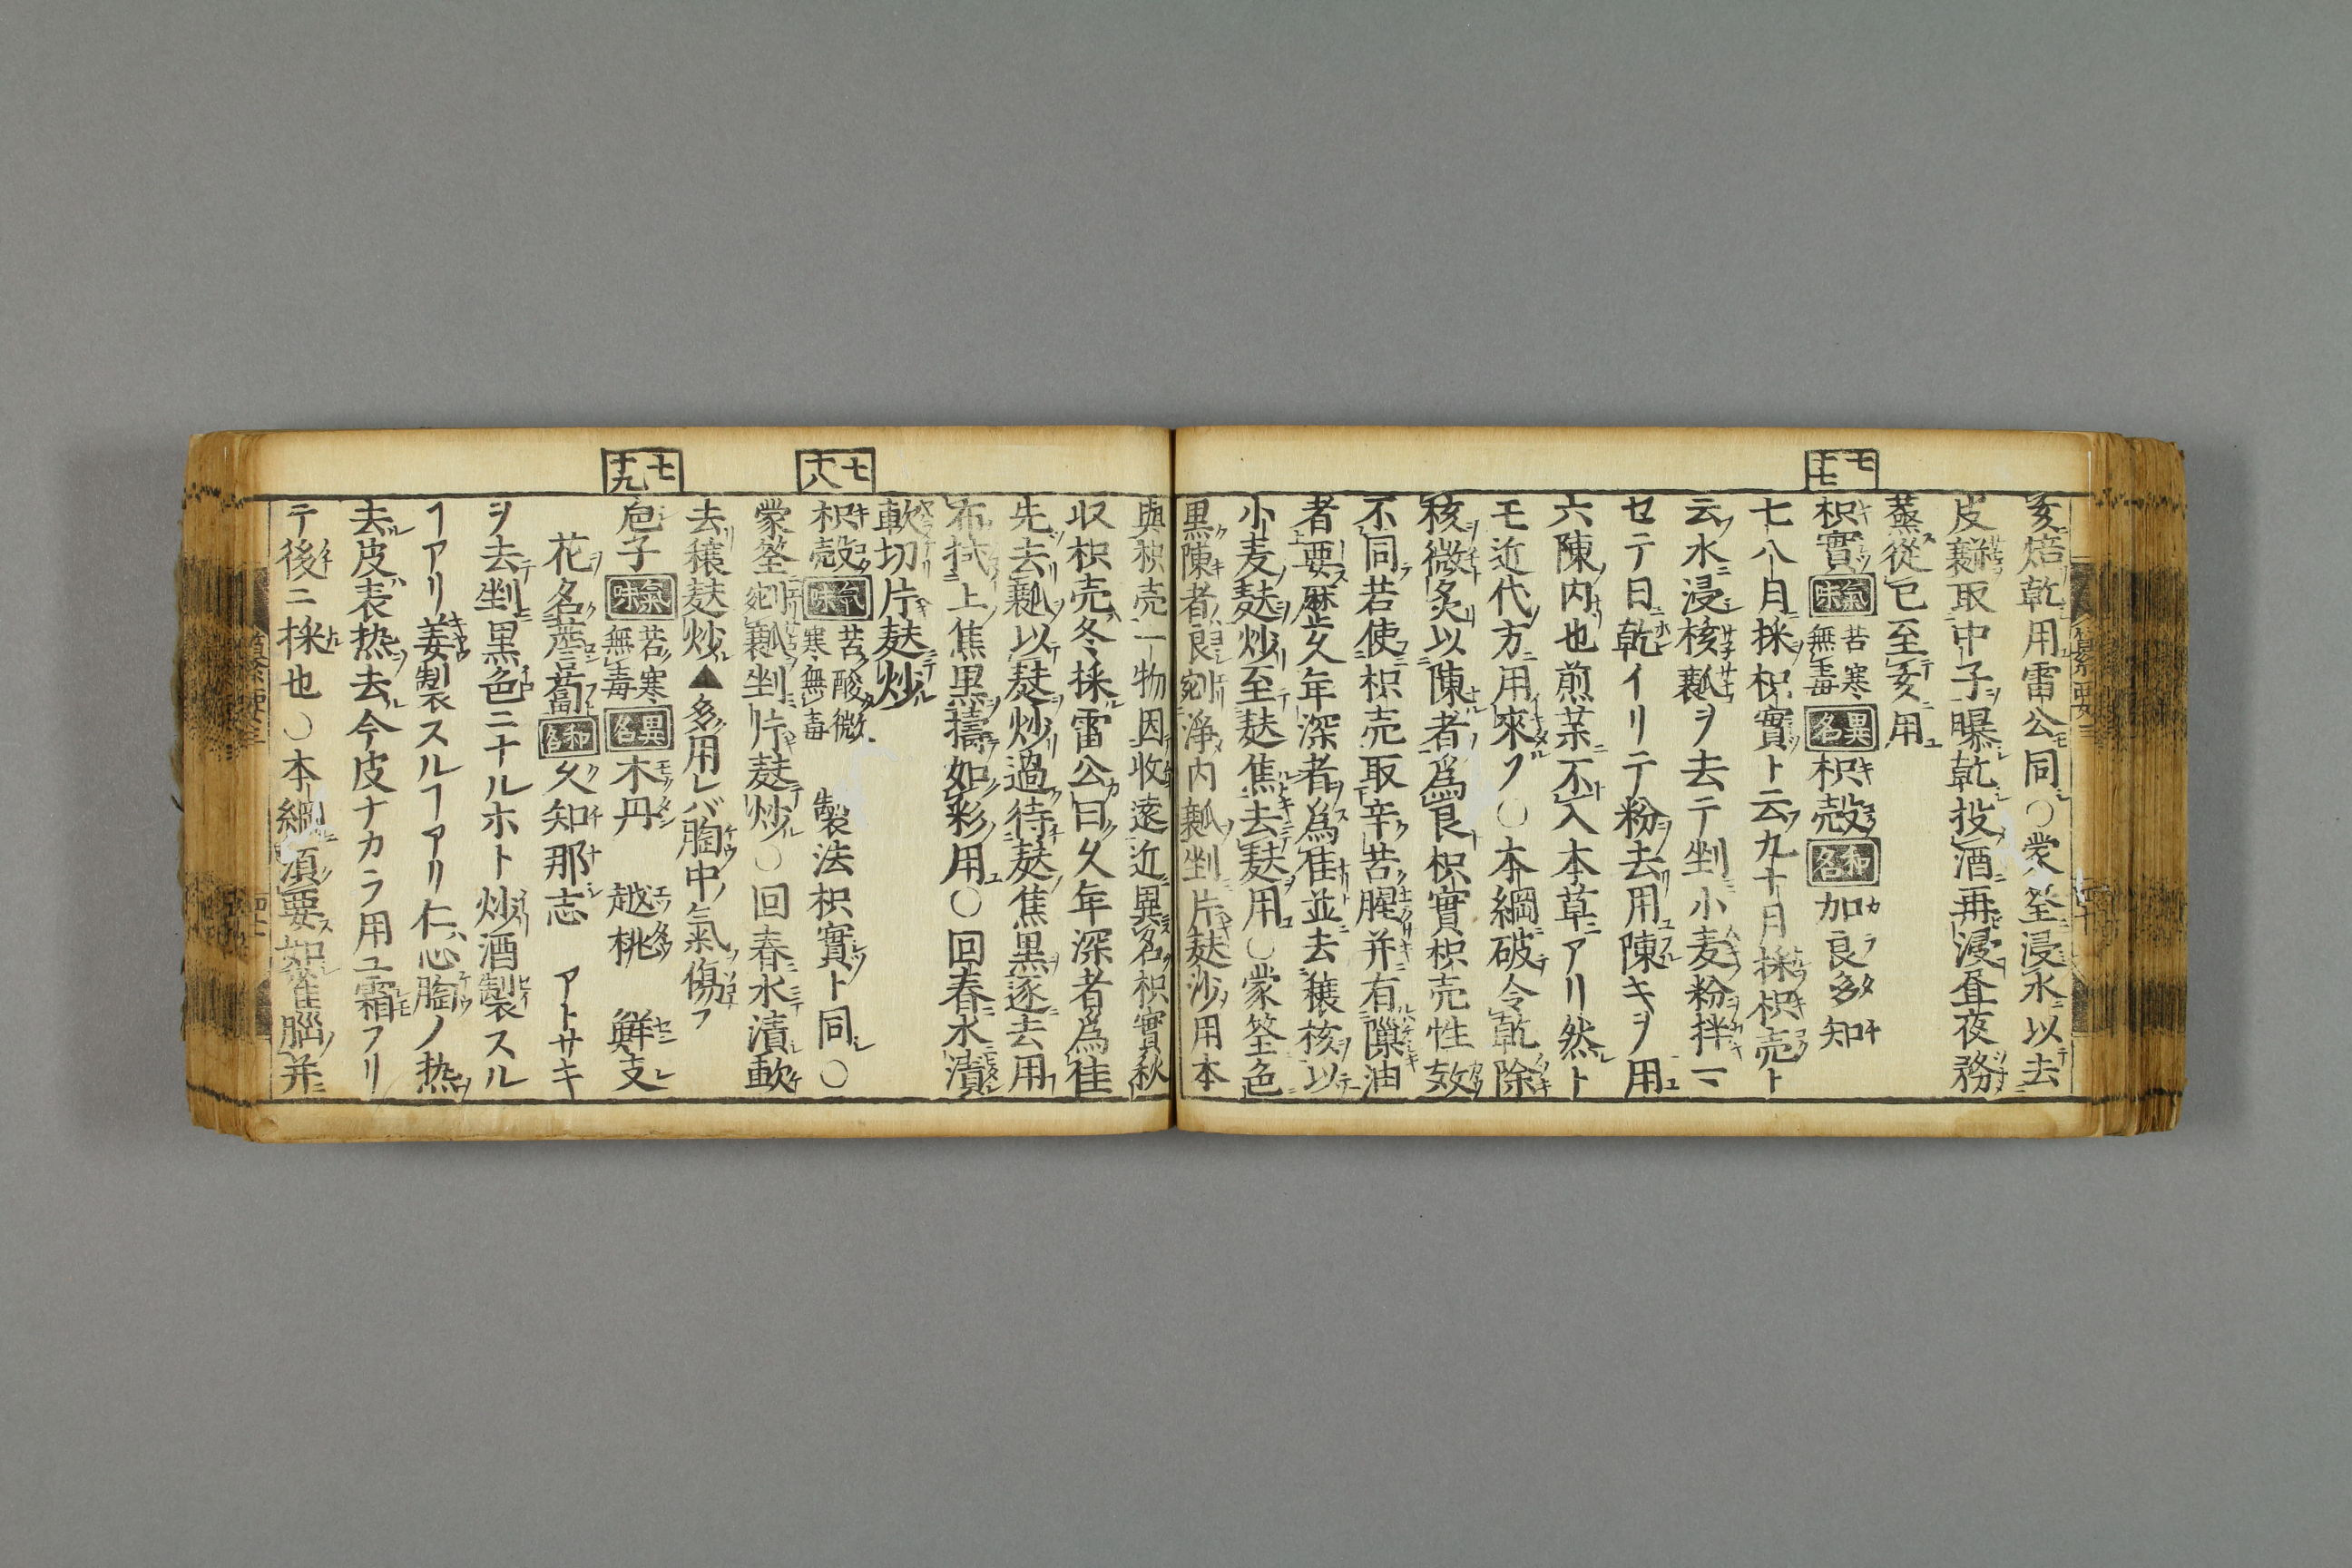 亥焙乾用雷公同○蒙筌浸水以去
皮瓤取中子曝乾投酒再浸昼夜務
蒸從巳至亥用
七十七
枳實 氣味 苦寒無毒 異名 枳殻 和名 加良多知
七八月採枳實ト云九十月採枳壳ト
云水浸核瓤ヲ去テ剉小麦粉拌一
セテ日乾イリテ粉去用陳キヲ用
六陳ノ内也煎薬不入本草アリ然ト
モ近代方用來ル○本綱破令乾除
核微炙以陳者爲良枳實枳壳性效
不同若使枳壳取辛苦腥并有隟油
者要塵久年深者爲佳並去穣核以
小麦麸炒至麸焦去麸用○蒙筌色
黒陳者良宛浄内瓤剉片麸炒用本
與枳壳一物因收遠近異名枳實秋
収枳壳冬採雷公曰久年深者爲佳
先去瓤以麸炒過待麸焦黒逐去用
布拭上焦黒擣如彩用○回春水漬
軟切片麸炒
七十八
枳殻 氣味 苦酸微寒無毒 製法枳實ト同○
蒙筌宛瓤剉片麸炒○回春水漬軟
去穣麸炒▲多用レバ胸中氣傷フ
七十九
巵子 氣味 苦寒無毒 異名 木丹 越桃 鮮支
花名薝蔔 和名 久知那志 アトサキ
ヲ去剉黒色ニナルホト炒酒製スル
ヿアリ姜製スルヿアリ仁心胸ノ热
去皮表热去今皮ナカラ用ユ霜フリ
テ後ニ採也○本綱須要如雀腦并